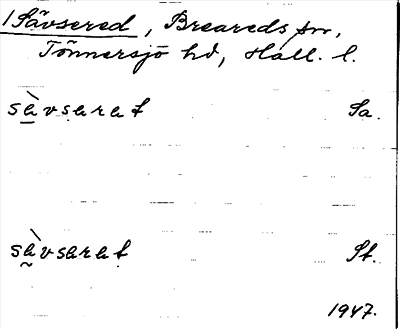 1 Sävsered, Breareds sn,
Tönnersjö hd, Hall. l.
sàvsarat Sa.
sàvsarat St.
1947.